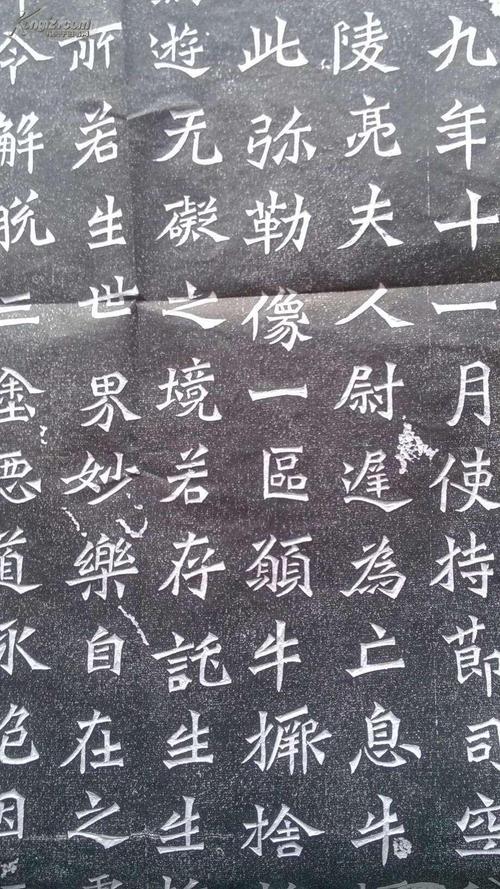 九年十一月使持節司空
陵亮夫人尉遲為亡息牛
此弥勒像一區願牛橛捨
遊无礙之境若存託生生
所若生世界妙樂自在之
令解脱三塗惡道永絶因